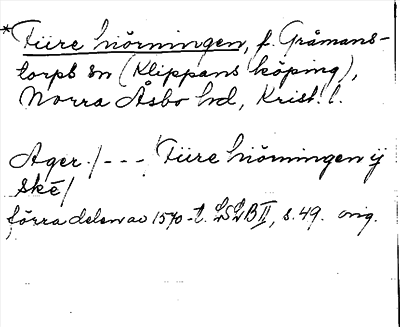 *Fiire hiörningen, f. Gråmans-
torps sn (Klippans köping),
Norra Åsbo hd, Krist. l.
Ager / - - - Fiire hiörningen ij
skē /
förra delen av 1570-t. LSLB II, s. 49. orig.